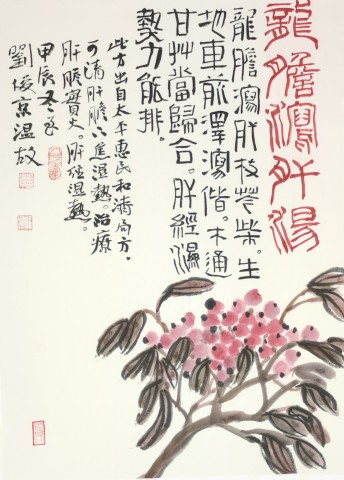 龍膽瀉肝湯
龍膽瀉肝枝芩柴。生
地車前澤瀉偕。木通
甘艸當歸合。肝經濕
熱力能排。
此方出自太平惠民和濟局方。
可清肝膽下焦濕熱。治療
肝膽實火。肝經濕熱。
甲辰冬
劉俊京溫故